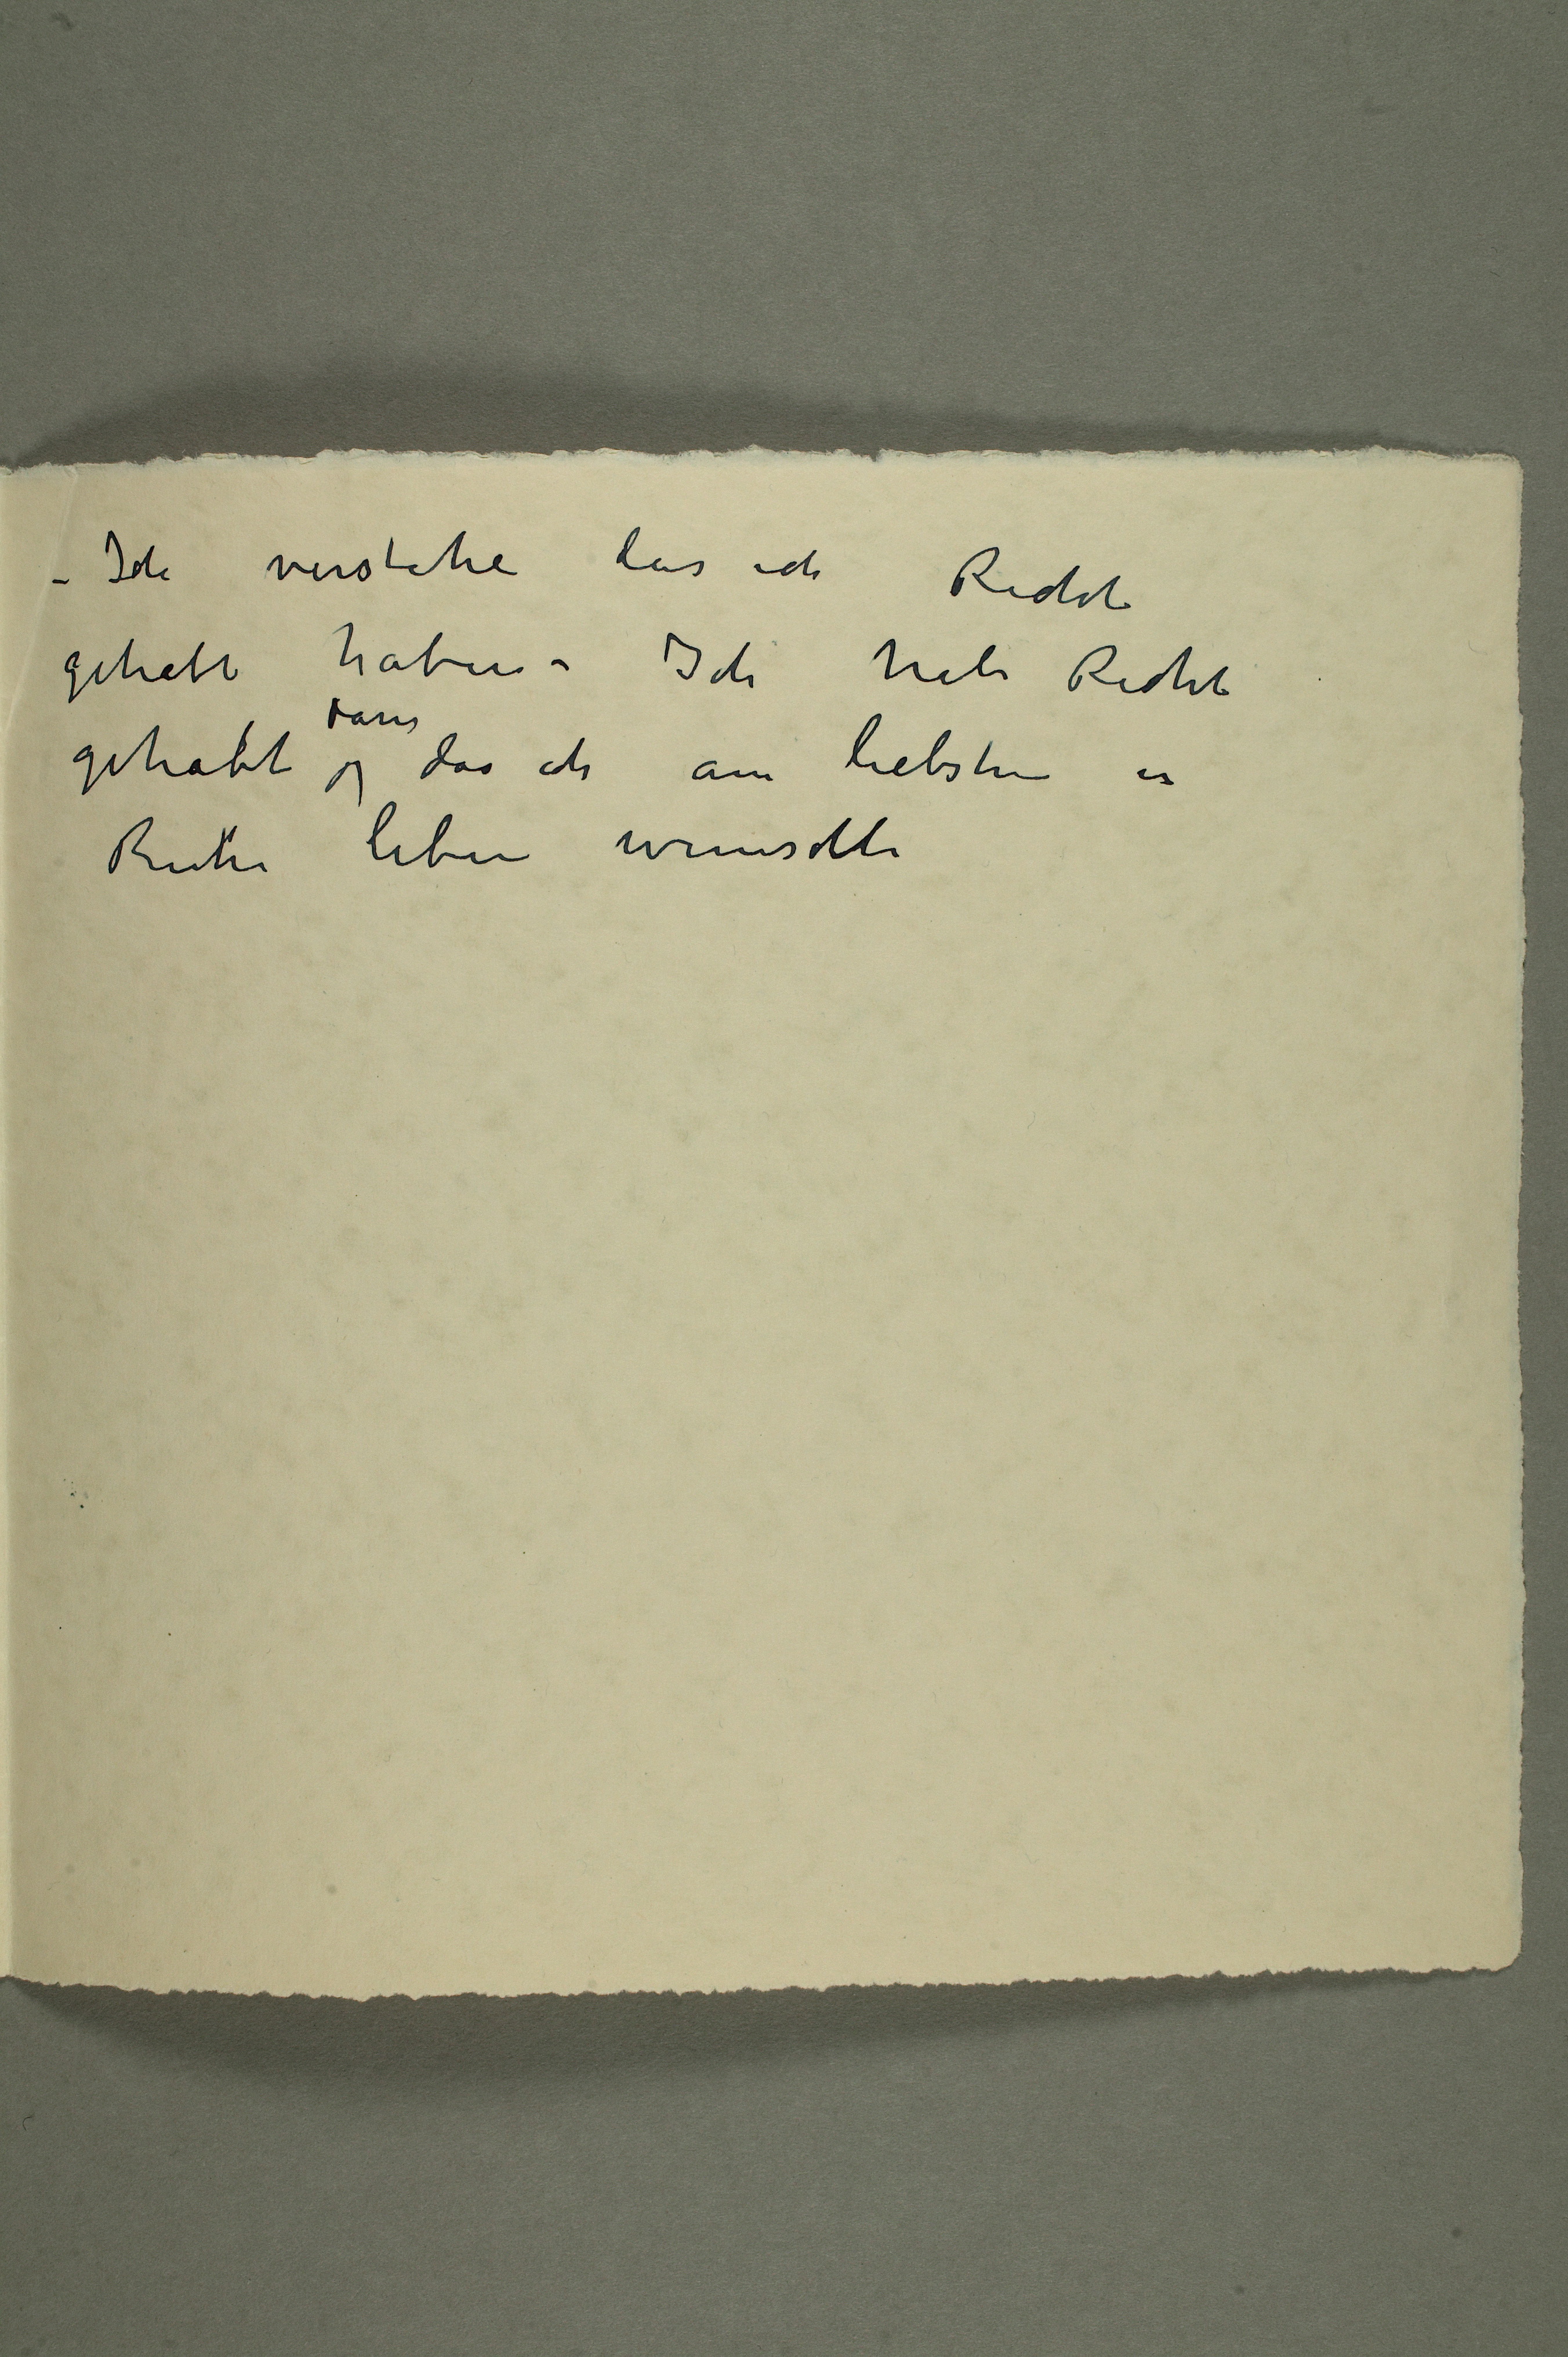 – Ich verstehe das ich Recht
gehabt haben – Ich habe Recht
dass
gehabt das ich am liebsten in
Ruhe leben wunschte